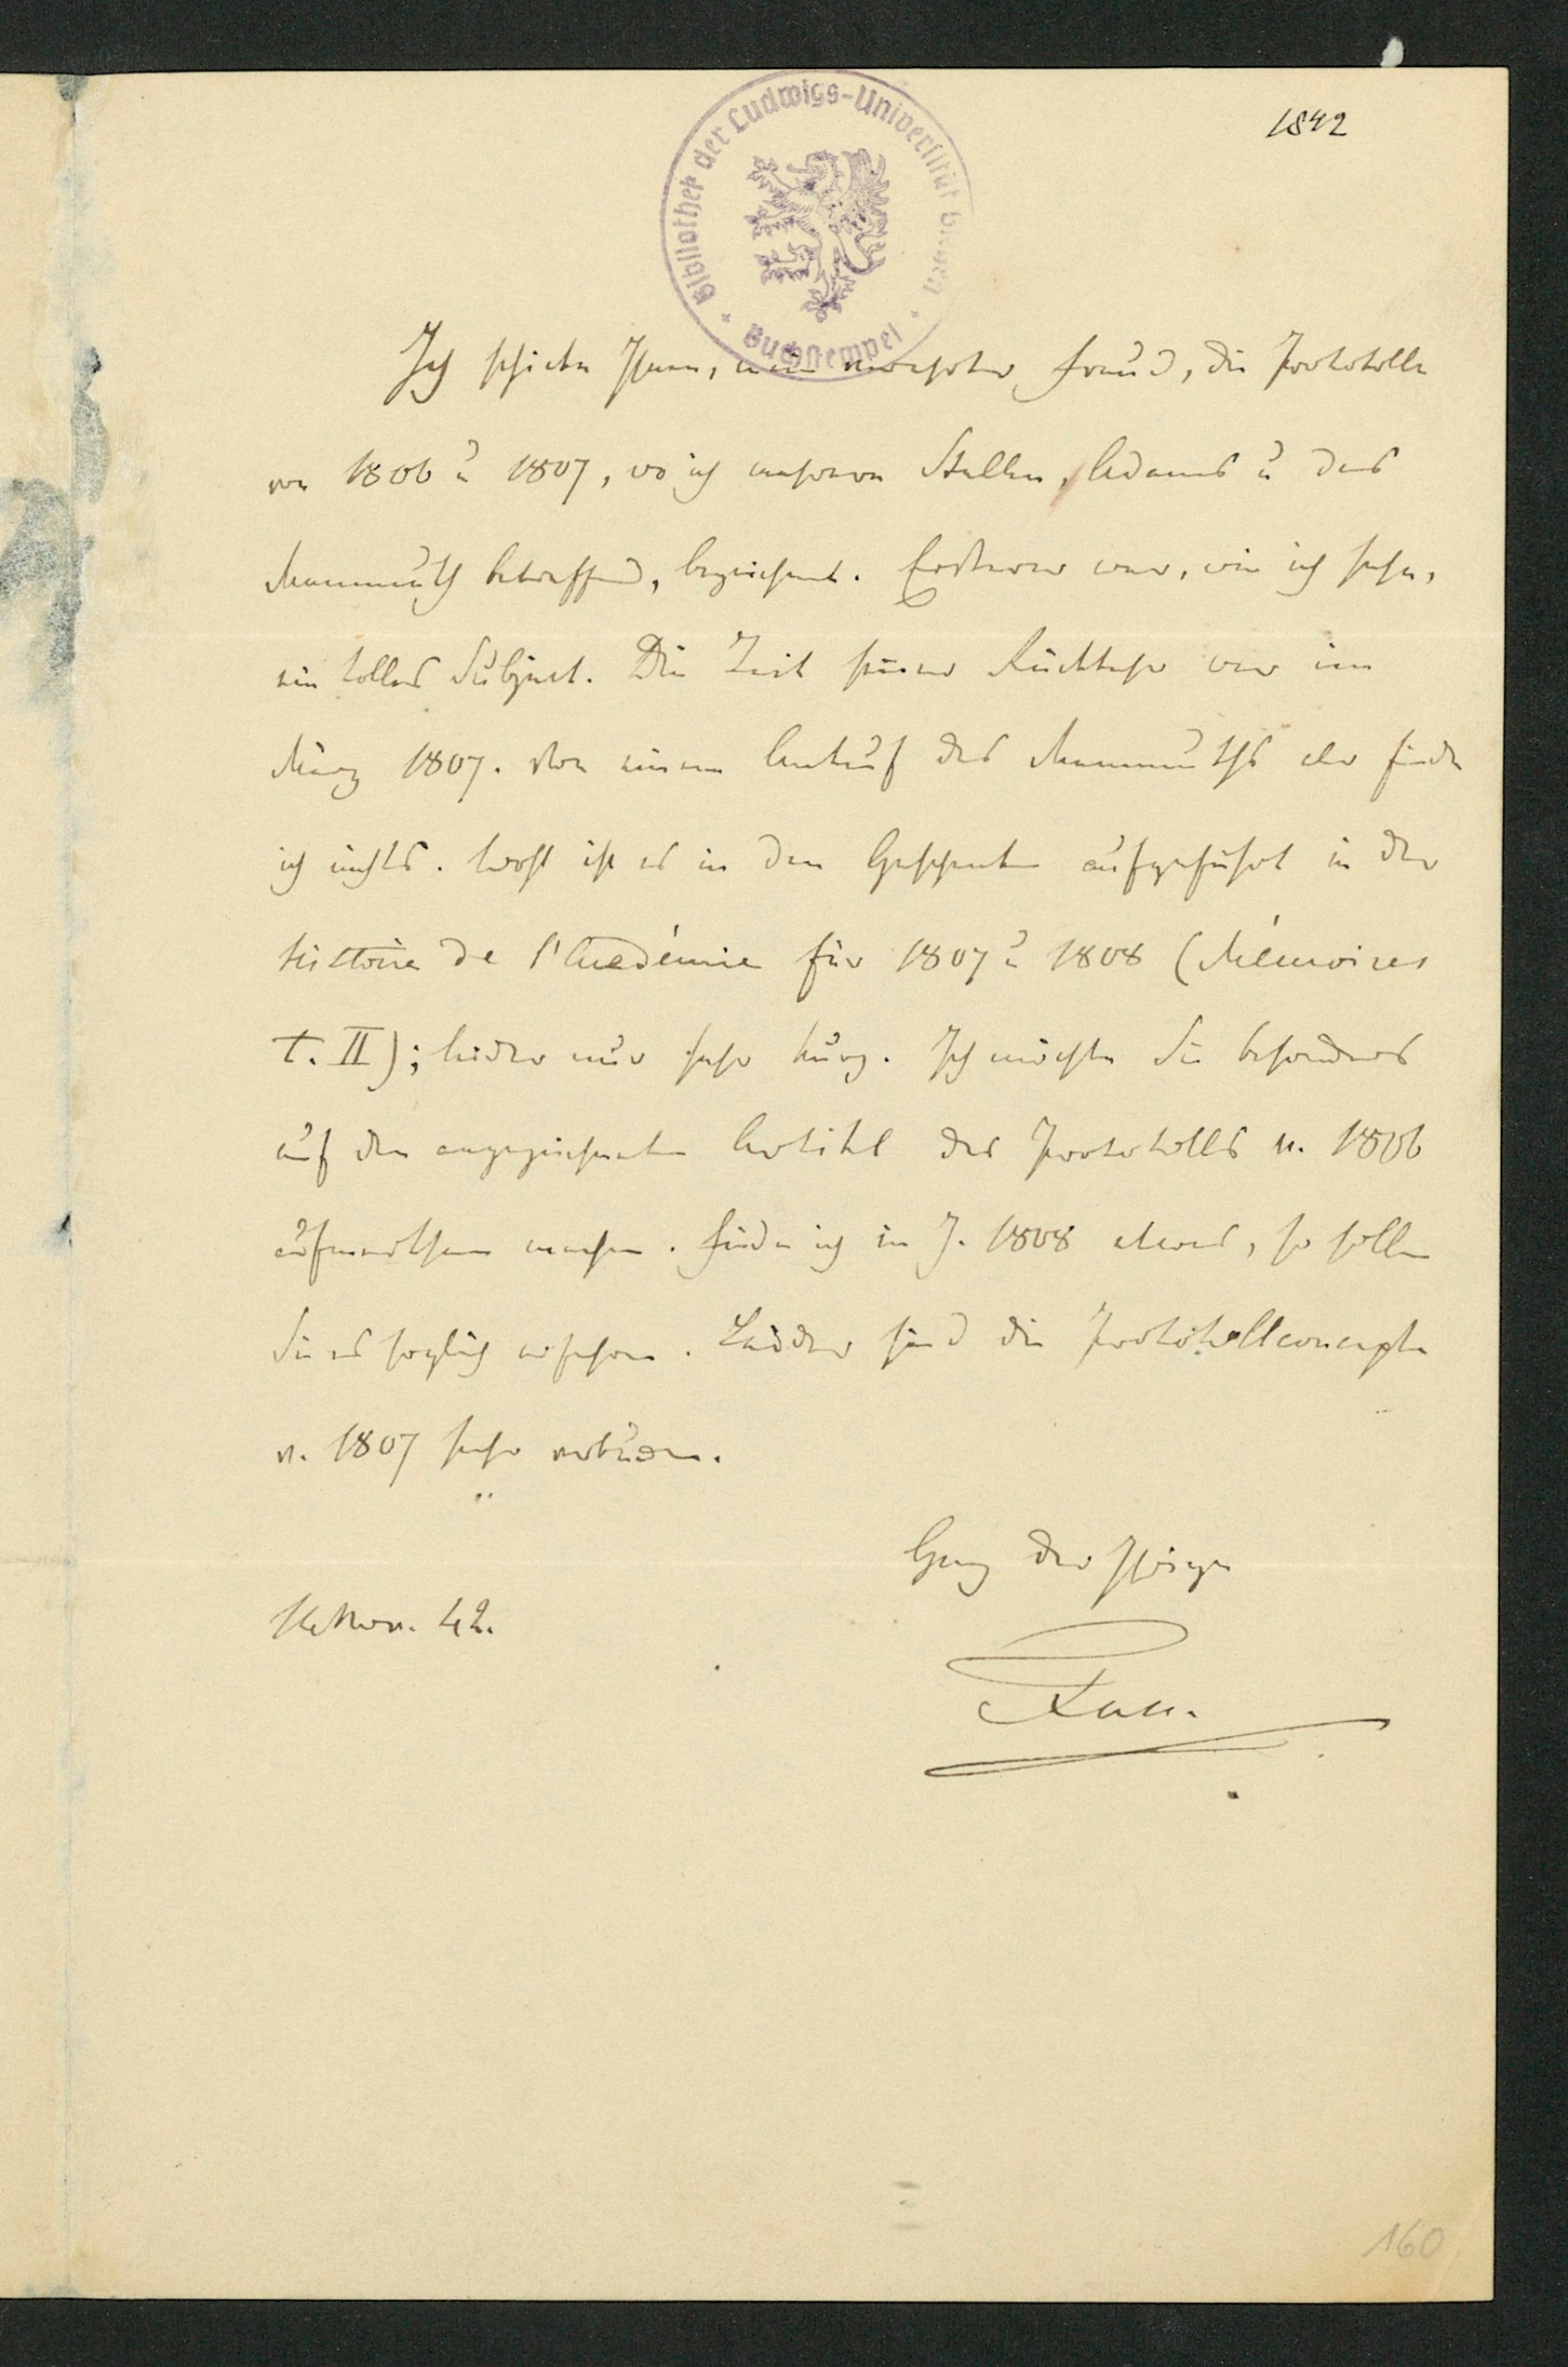 1842
Bibliothek der Ludwigs-Universität Giessen
Buchstempel
Ich schicke Ihnen, mein verehrter Freund, die Protokolle
von 1806 u 1807, wo ich mehrere Stellen, Adams u das
Mammuth betreffend, bezeichnet. Ersterer war, wie ich sehe,
ein tolles Subject. Die Zeit seiner Rückkehr war im
März 1807. Von einem Ankauf des Mammuths aber finde
ich nichts. Wohl ist es in den Geschenken aufgeführt in der
histoire de l'Académie für 1807 u 1808 (Mémoires
t. II); leider nur sehr kurz. Ich möchte Sie besonders
auf den angezeichneten Artikel des Protokolls v. 1806
aufmerksam machen. Finde ich im J. 1808 etwas, so sollen
Sie es sogleich erfahren. Leider sind die Protokollconcepte
v. 1807 sehr
Ganz der Ihrige
Nov. 42.
160